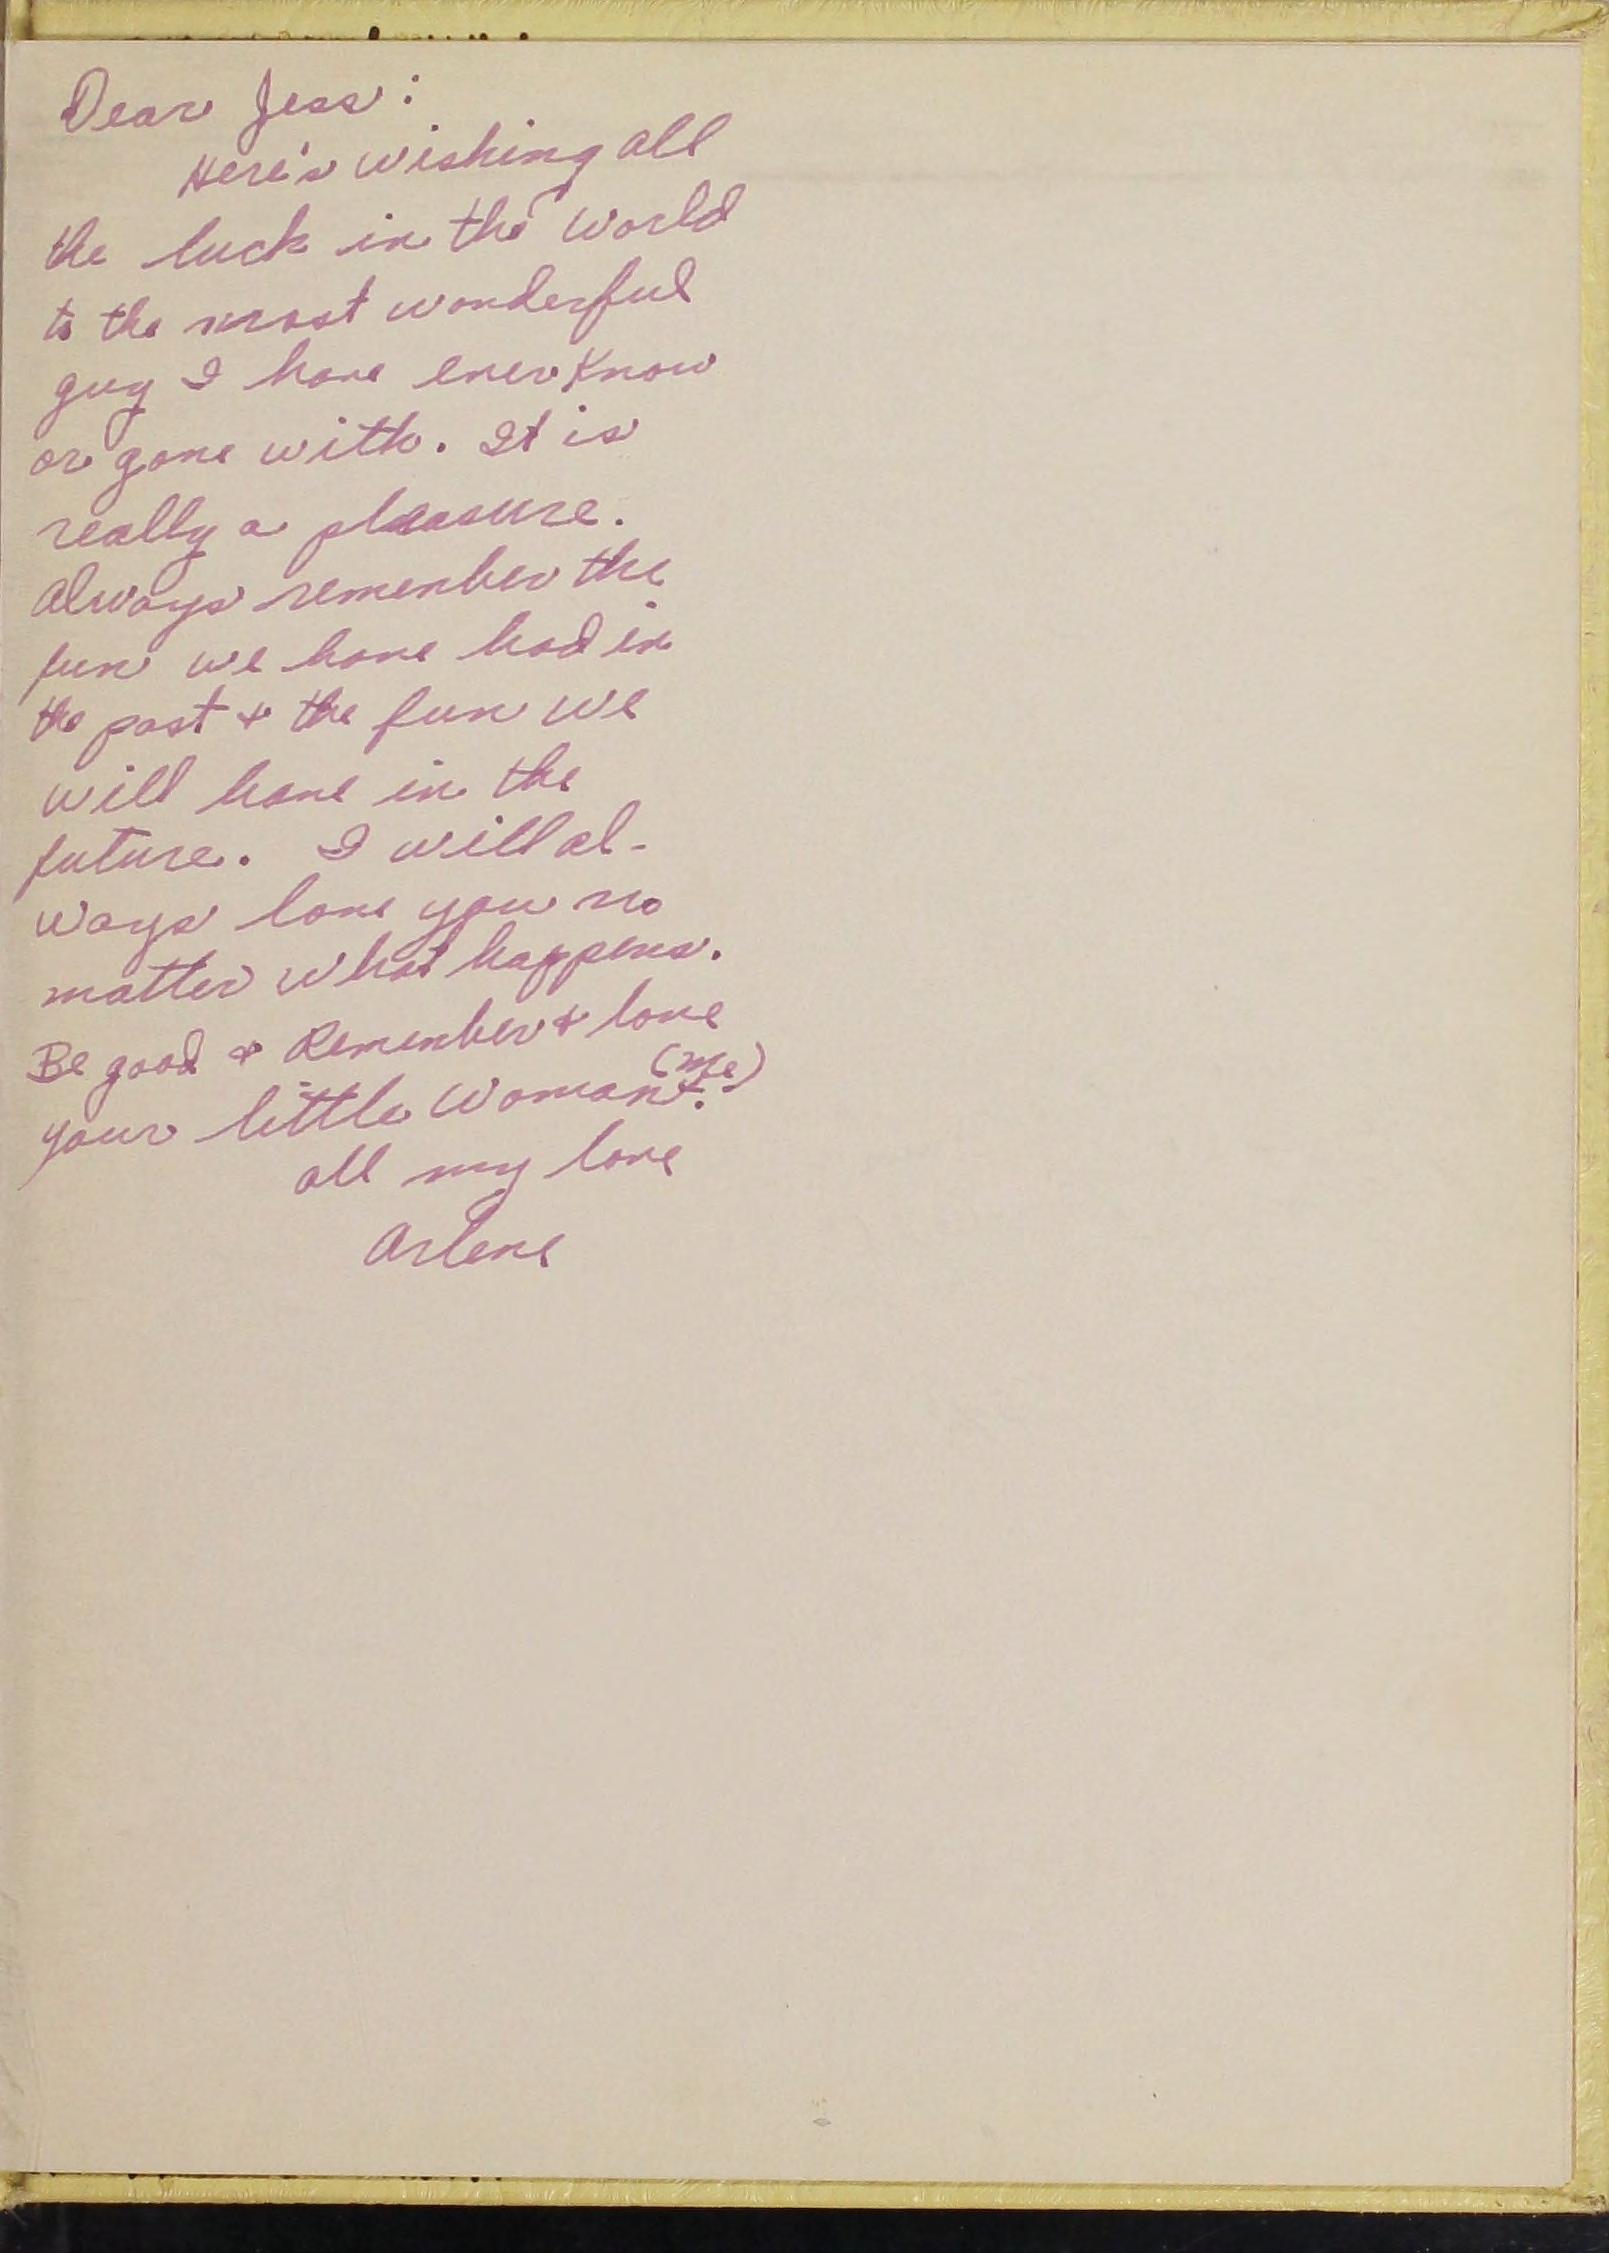 Dear Jess:
Here's wishing all
the luck in the world
to the most wonderful
guy I have ever Know
or gone with. It is
really a pleasure.
Always remember the
fun we have had in
the past & the fun we
will have in the
future. I will al-
ways love you no
matter what happens.
Be good & Remember & love
your little woman. (me)
all my love
Arlene